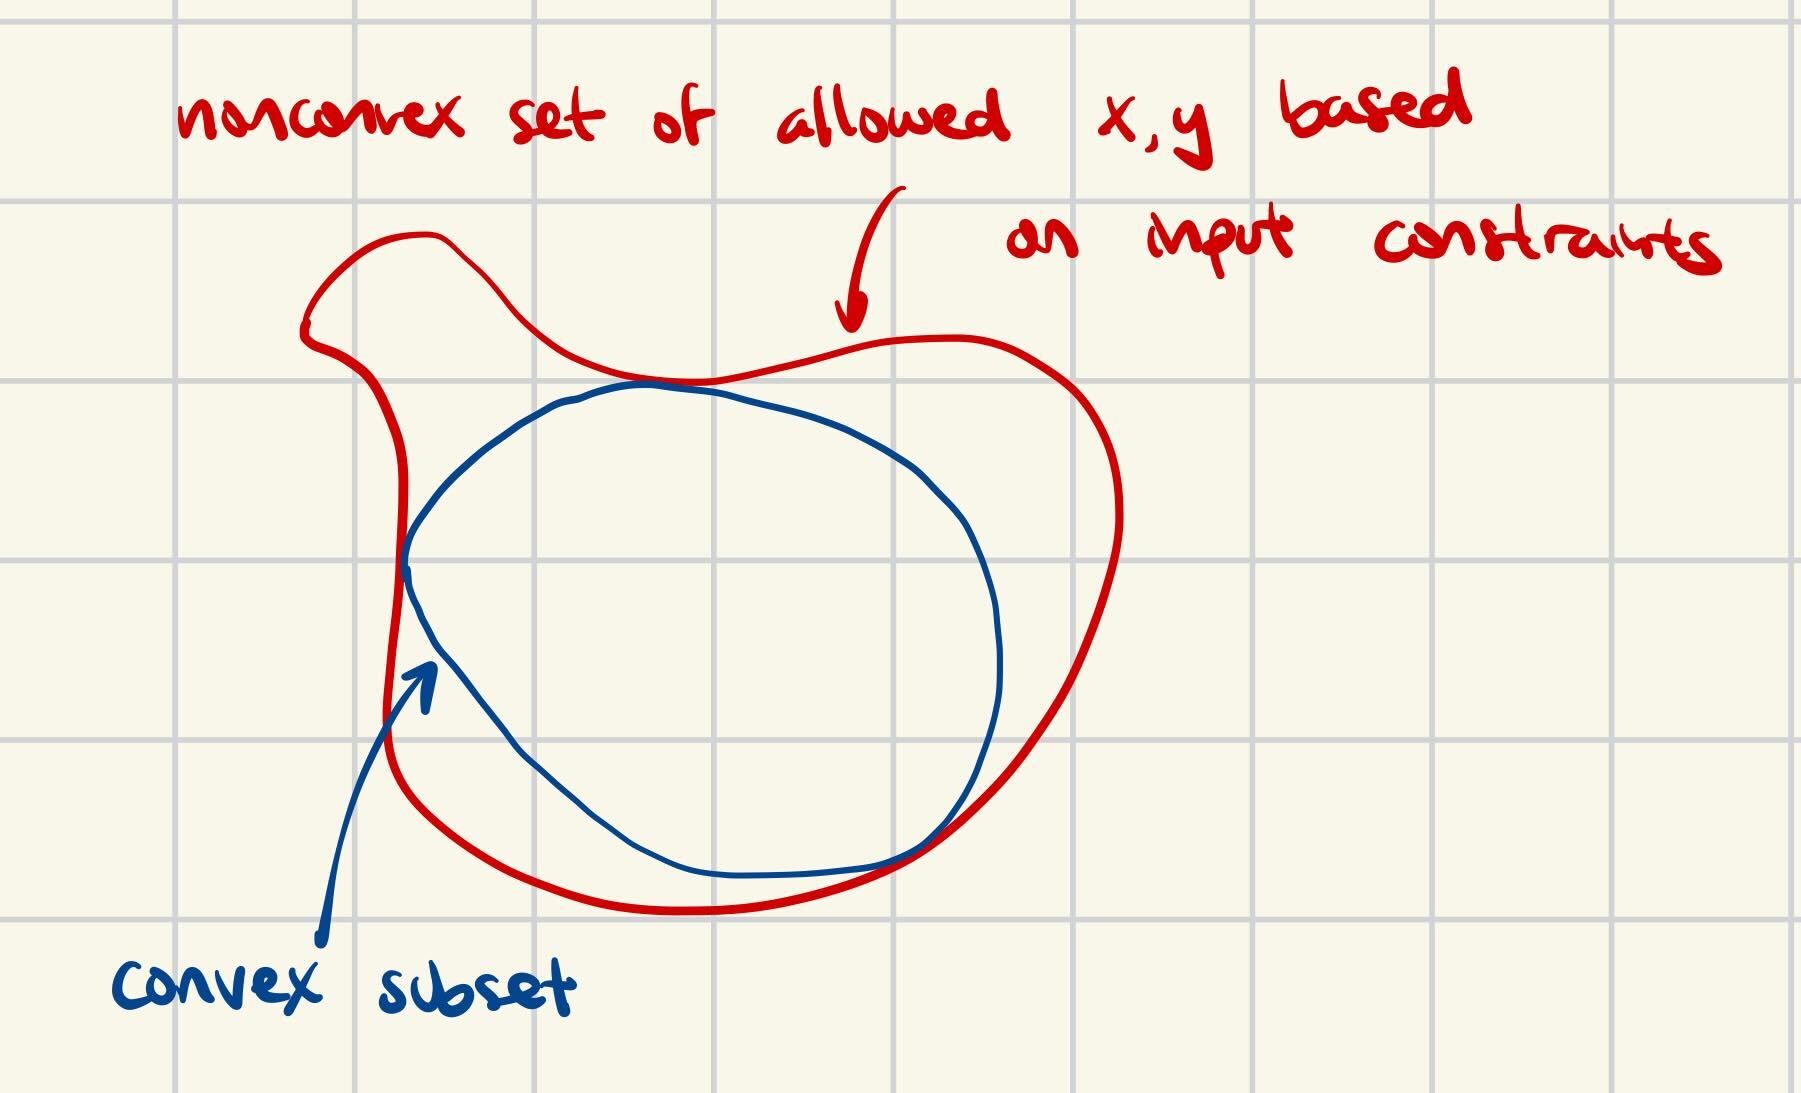 nonconvex set of allowed x,y based
on input constraints
convex subset